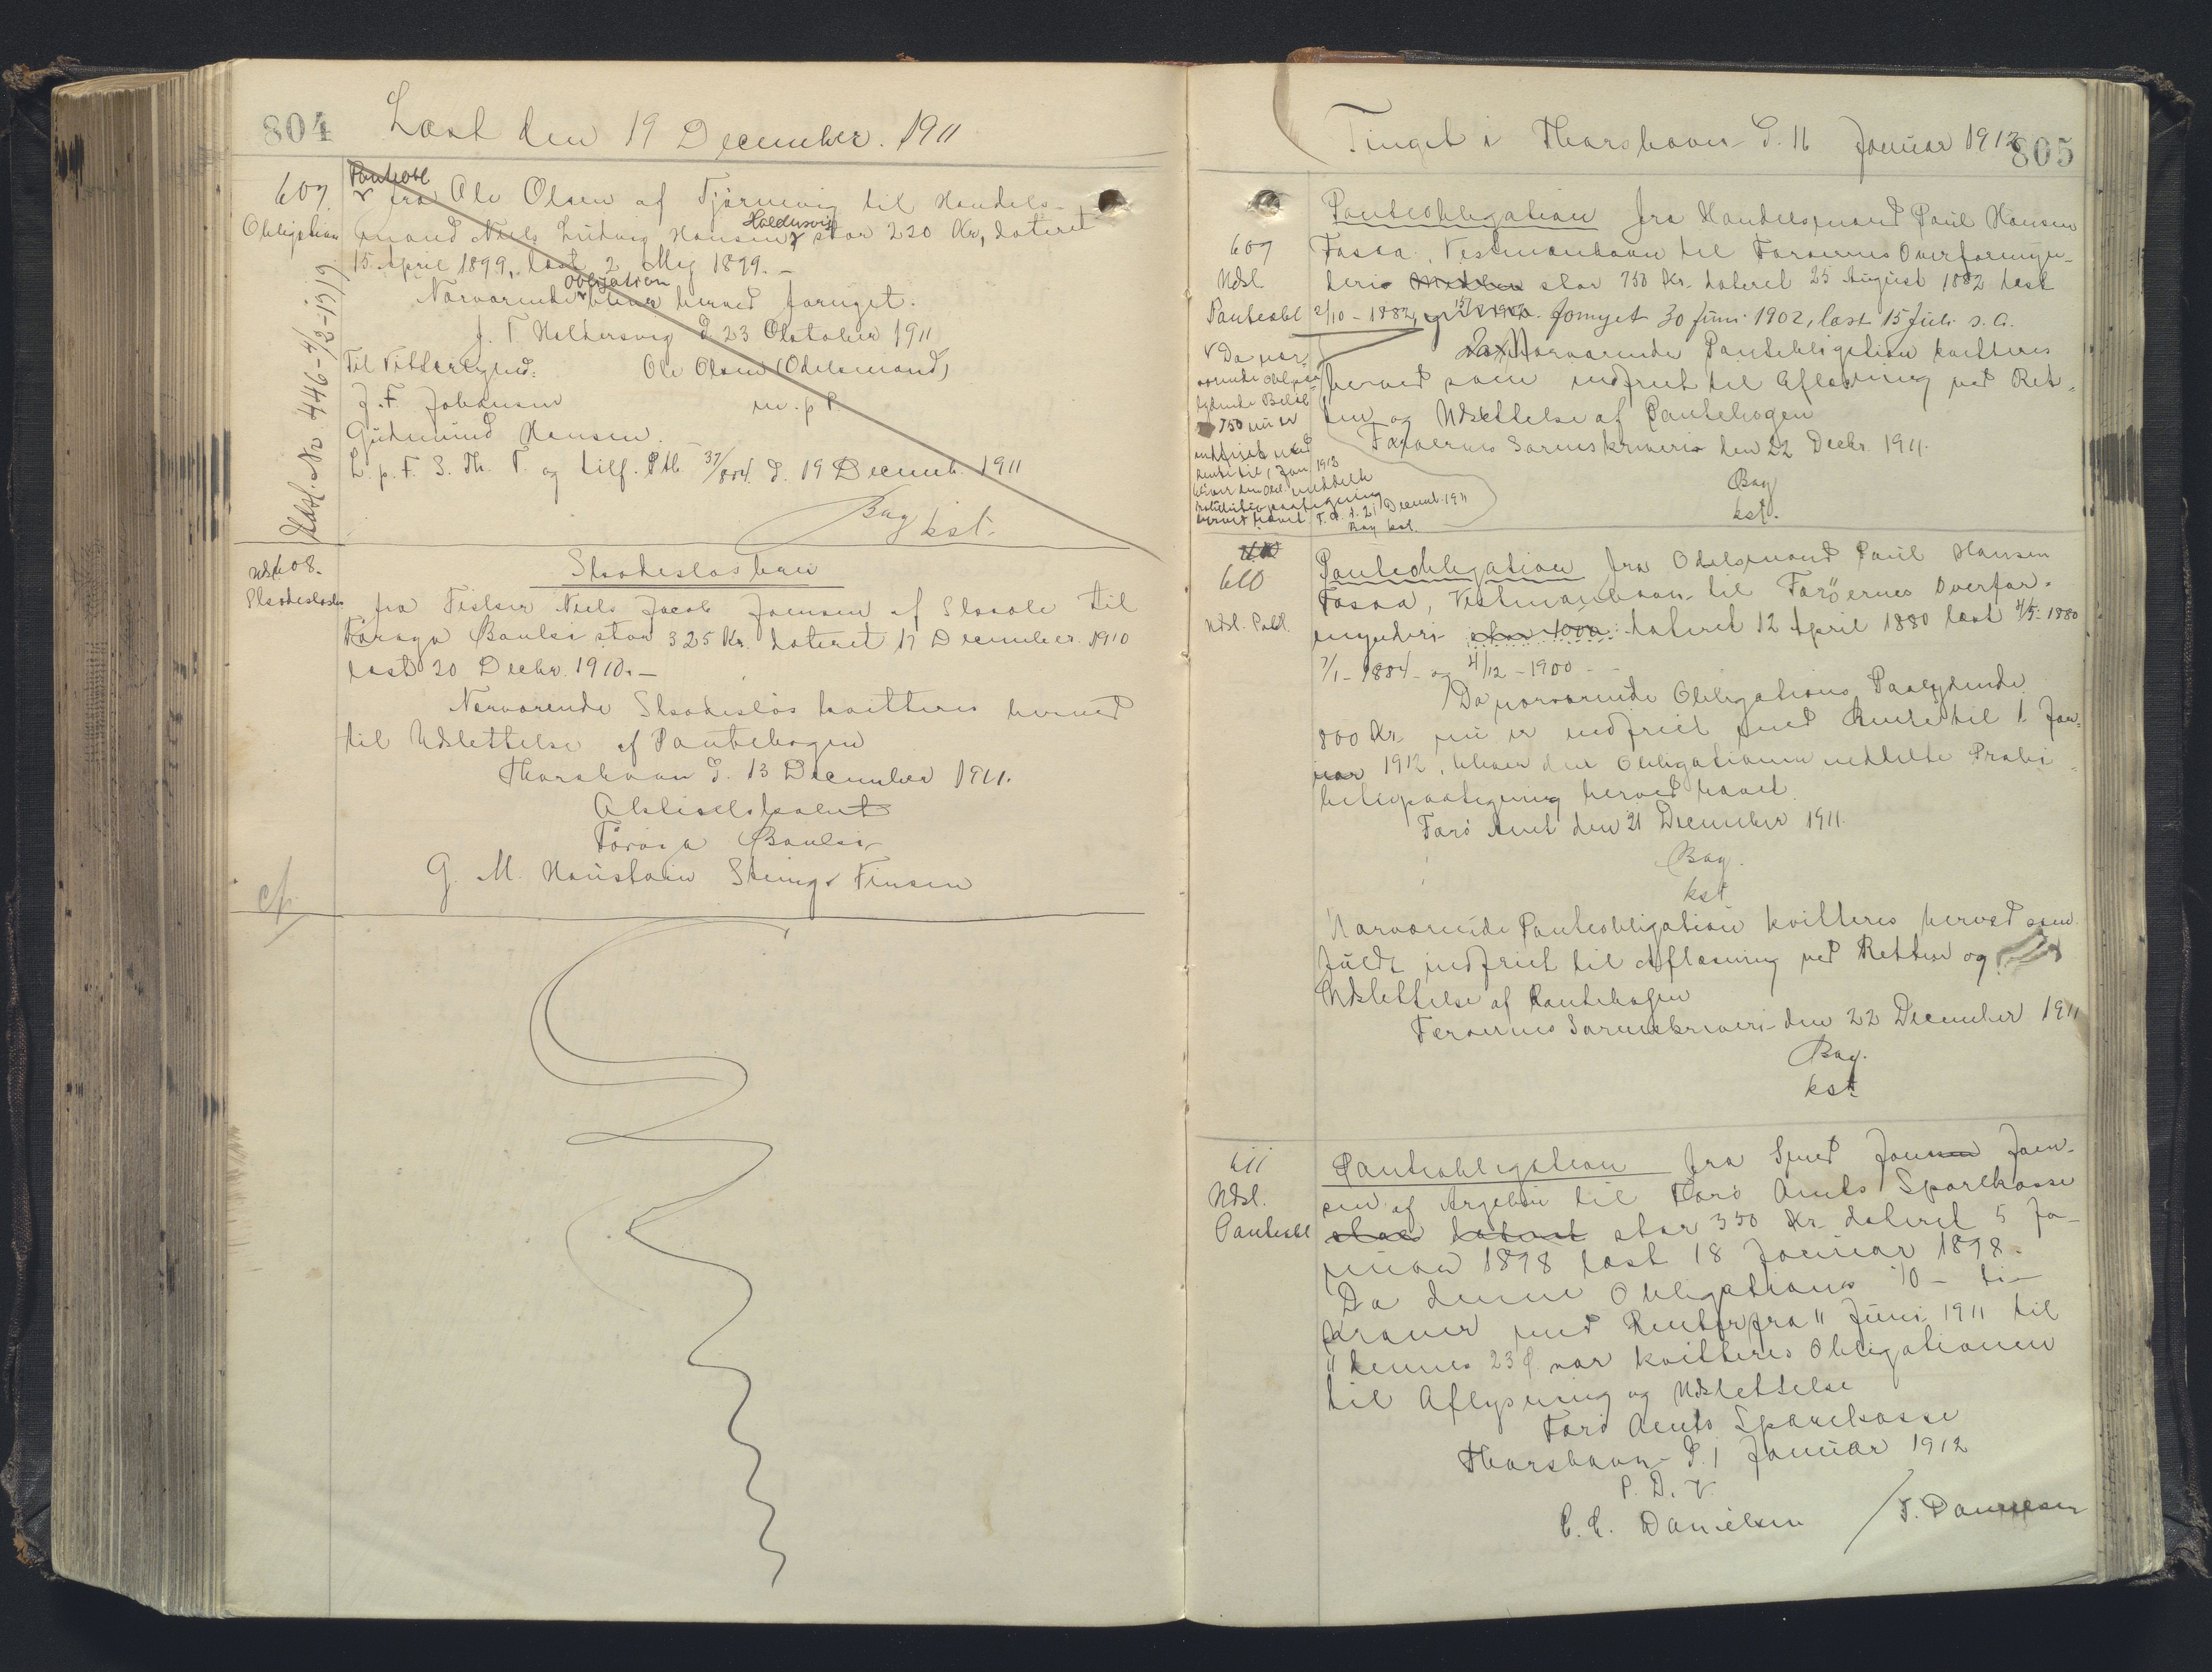 804
Læst den 19 December. 1911
607
Obligation
Panteobl
fra Ole Olsen af Tjörnevig til Handels-
mand Niels Ludvig Hansen, Haldersvig stor 220 Kr, dateret
15 April 1899, læst 2 Maj 1899. –
Nærværende Obligation bliver herved fornyet.
J. T. Haldersvig d. 23 Oktober 1911
Til Vitterlighed: Ole Olsen (Odelsmand)
J. F. Johansen m. p. P.
Gudmund Hansen.
L. p. F. S. Th. T. og tilf. Ptb. 37/804. d. 19 Decemb. 1911
Bay
kst.
Udsl. No 446-4/12-1919
Udsl 608.
Skadesløsbr
Skadesløsbrev
fra Fisker Niels Jacob Joensen af Skaale til
Føroya Banki stor 325 Kr. dateret 17 December 1910
læst 20 Decbr. 1910. –
Nærværende Skadesløs kvitteres herved
til Udslettelse af Pantebogen
Thorshavn d. 13 December 1911.
Aktieselskabet
Föroya Banki
G. M. Haústain Steingr Finsen
805
Tinget i Thorshavn d. 11 Januar 1912
609
Udsl
Pantobl
Panteobligation fra Handelsmand Paul Hansen
Fossaa, Vestmanhavn til Færøernes Overformyn-
deri stor 750 Kr. dateret 25 August 1882 læst
2/10 - 1882, fornyet 30 Juni 1902, læst 15 Juli s. A.
Nærværende Panteobligation kvitteres
herved som indfriet til Aflæsning ved Ret-
ten og Udslettelse af Pantebogen
Færøernes Sorenskriveri den 22 Decbr. 1911.
Bay
kst.
Da nær-
værende Obligs
lydende Beløb
750 nu er
indfriet med
Rente til 1 Jan 1912
bliver den Obl. meddelte
Prohibitivpaategning
herved hævet F. A. d. 21 Decemb. 1911
Bay kst.
610
Udsl. Pobl.
Panteobligation fra Odelsmand Paul Hansen
Fossaa, Vestmanhavn til Færöernes Overfor-
mynderi stor 1000 dateret 12 April 1880 læst 4/5 - 1880
7/1 - 1884 - og 4/12 - 1900 -
Da nærværende Obligations Paalydende
800 Kr. nu er indfriet med Rente til 1 Jan-
uar 1912, bliver den Obligationen meddelte Prohi-
bitivpaategning herved hævet.
Færö Amt den 21 December 1911.
Bay.
kst
Nærværende Panteobligation kvitteres herved som
fuldt indfriet til Aflæsning ved Retten og
Udslettelse af Pantebogen
Færøernes Sorenskriveri den 22 December 1911
Bay.
kst
611
Udsl.
Panteobl
Panteobligation fra Smed Joen-
sen af Argebö til Færö Amts Sparekasse
stor 350 Kr. dateret 5 Ja-
nuar 1898 læst 18 Januar 1898.
Da denne Obligations 10 - ti -
Kroner med Renter fra 11 Juni 1911 til
11 dennes 23 Ø. var kvitteres Obligationen
til Aflysning og Udslettelse
Færö Amts Sparekasse
Thorshavn d. 1 Januar 1912
P. D. V.
C. C. Danielsen / J. Danielsen